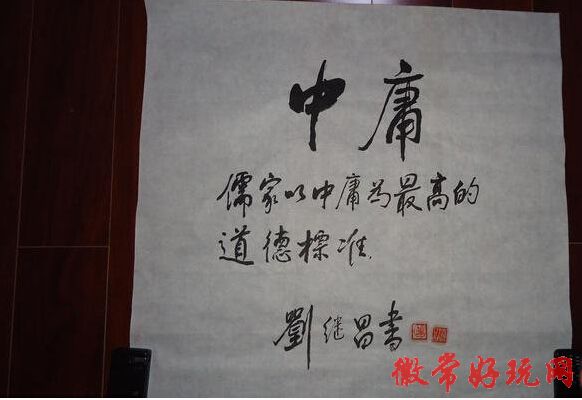 中庸
儒家以中庸为最高的
道德標准.
劉继昌书
徽常好玩网